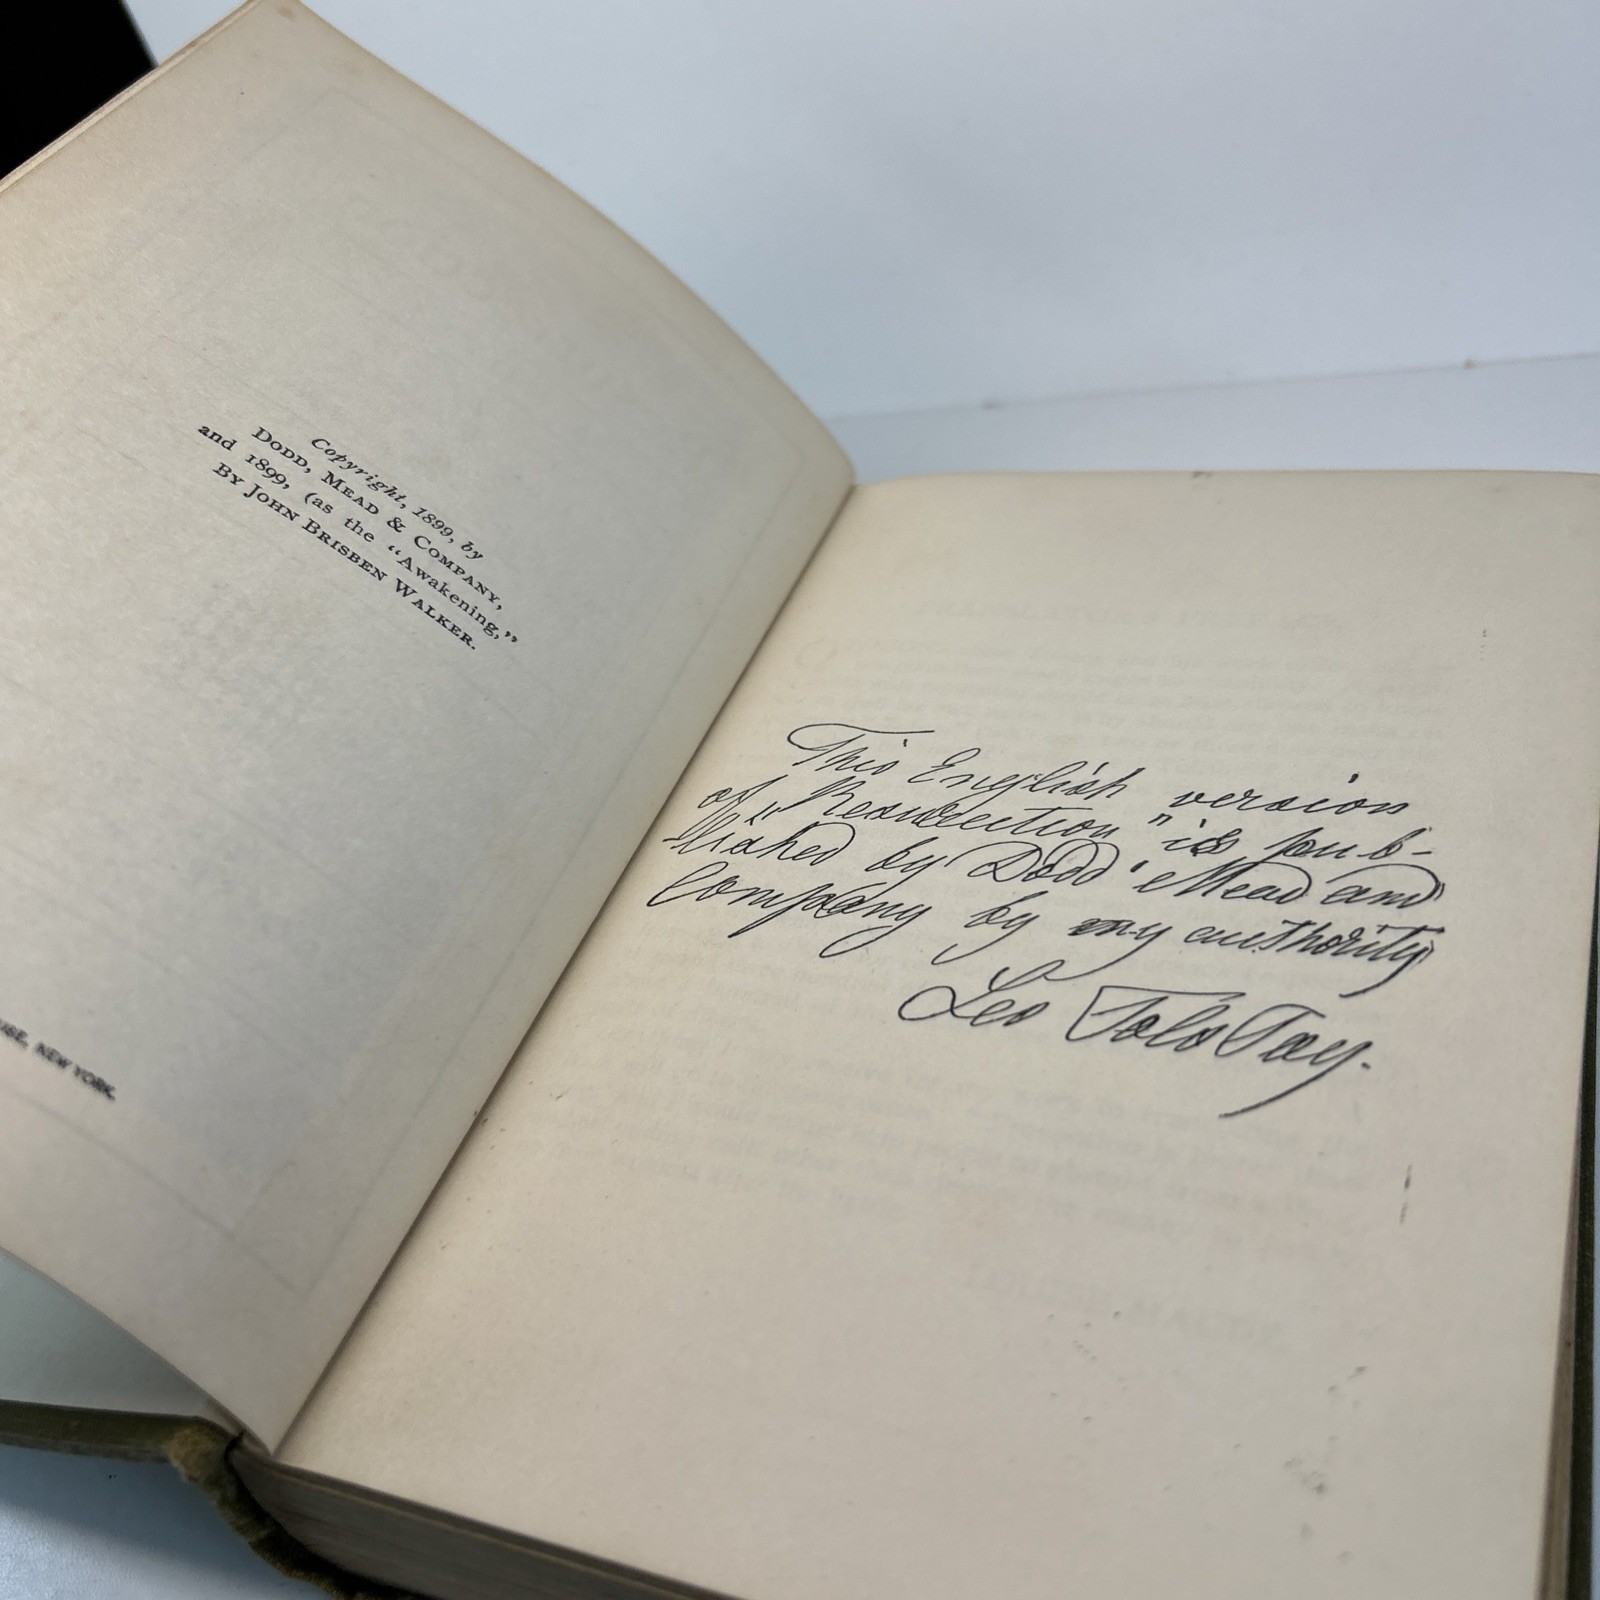 Copyright, 1899, by
DODD, MEAD & COMPANY,
and 1899, (as the "Awakening,"
BY JOHN BRISBEN WALKER.
NEW YORK.
This English version
of „Resurrection" is pub-
lished by Dodd Mead and
Company by my authority
Leo Tolstoy.